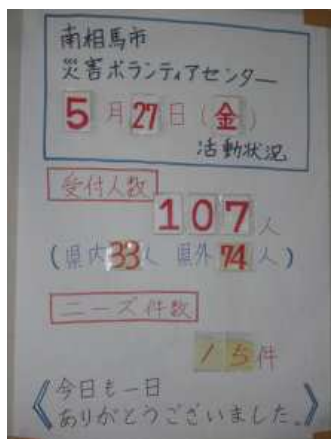 南相馬市
災害ボランティアセンター
5月27日(金)
活動状況
受付人数
107人
(県内33人 県外74人)
ニーズ件数
15件
《今日も一日
ありがとうございました。》